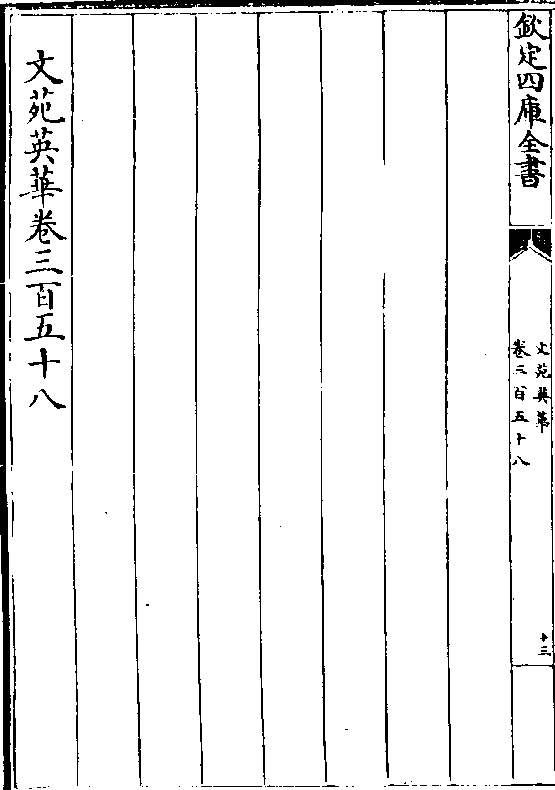 欽定四庫全書
文苑英華
卷三百五十八
十三
文苑英華卷三百五十八